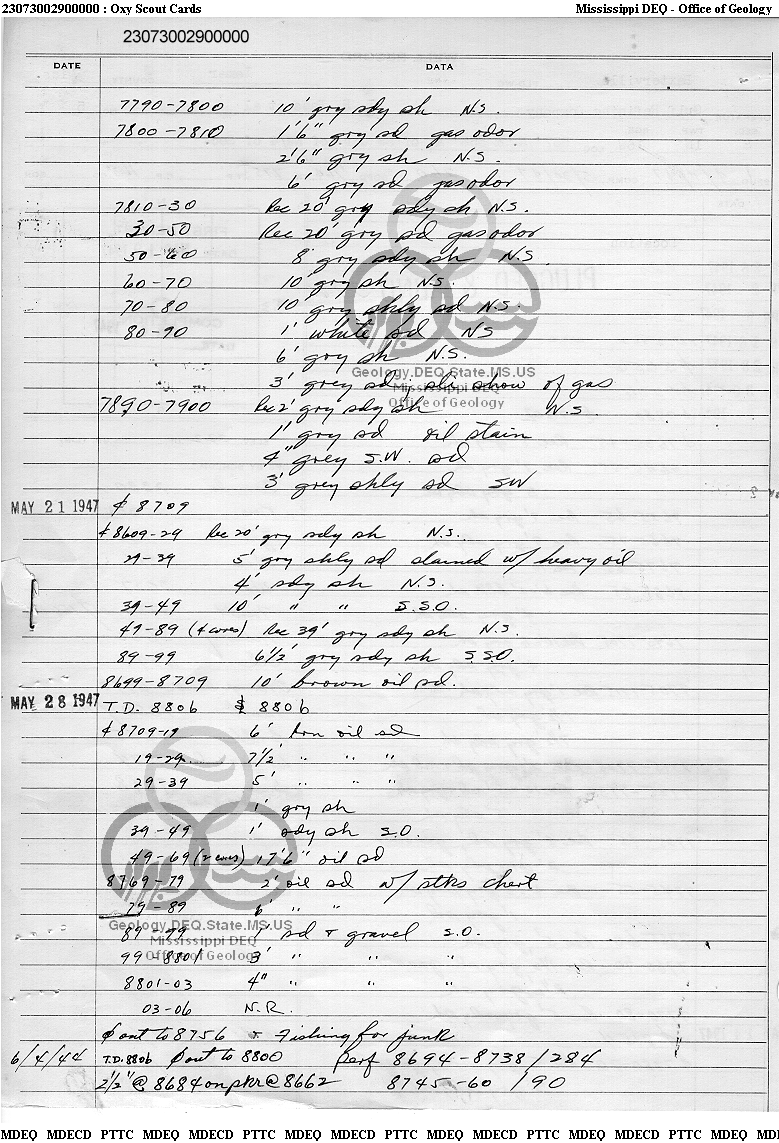 23073002900000 : Oxy Scout Cards Mississippi DEQ - Office of Geology
23073002900000
DATE DATA
7790-7800 10' gry sdy sh N.S.
7800-7810 1'6" gry sd gas odor
2'6" gry sh N.S.
6' gry sd gas odor
7810-30 Rec 20' gry sdy sh N.S.
30-50 Rec 20' gry sd gas odor
50-60 8' gry sdy sh N.S.
60-70 10' gry sh N.S.
70-80 10' gry shly sd N.S.
80-90 1' white sd NS
6' gry sh N.S.
Geology.DEQ.State.MS.US
3' grey sd sli show of gas
Mississippi DEQ
Office of Geology
7890-7900 Rec 2' gry sdy sh N.S.
1' gry sd oil stain
4" grey S.W. sd
3' grey shly sd SW
MAY 21 1947 ¢ 8709
¢ 8609-29 Rec 20' gry sdy sh N.S.
29-39 5' gry shly sd stained w/ heavy oil
4' sdy sh N.S.
39-49 10' " " S.S.O.
49-89 (4 cores) Rec 39' gry sdy sh N.S.
89-99 6 1/2' gry sdy sh S.S.O.
8699-8709 10' brown oil sd.
MAY 28 1947 T.D. 8806 ¢ 8806
¢ 8709-19 6' brn oil sd
19-29 7 1/2' " " "
29-39 5' " " "
1' gry sh
39-49 1' sdy sh S.O.
49-69 (2 cores) 17'6" oil sd
8769-79 2' oil sd w/ stks chert
79-89 6' " "
Geology.DEQ.State.MS.US
89-99 1' sd & gravel S.O.
Mississippi DEQ
Office of Geology
99-8801 3' " " "
8801-03 4" " " "
03-06 N.R.
out to 8756 & Fishing for junk
6/4/44 T.D. 8806 out to 8800 Perf 8694-8738/284
2 1/2" @ 8684 on pkr @ 8662 8745-60 /90
MDEQ MDECD PTTC MDEQ MDECD PTTC MDEQ MDECD PTTC MDEQ MDECD PTTC MDEQ MDECD PTTC MDEQ MD